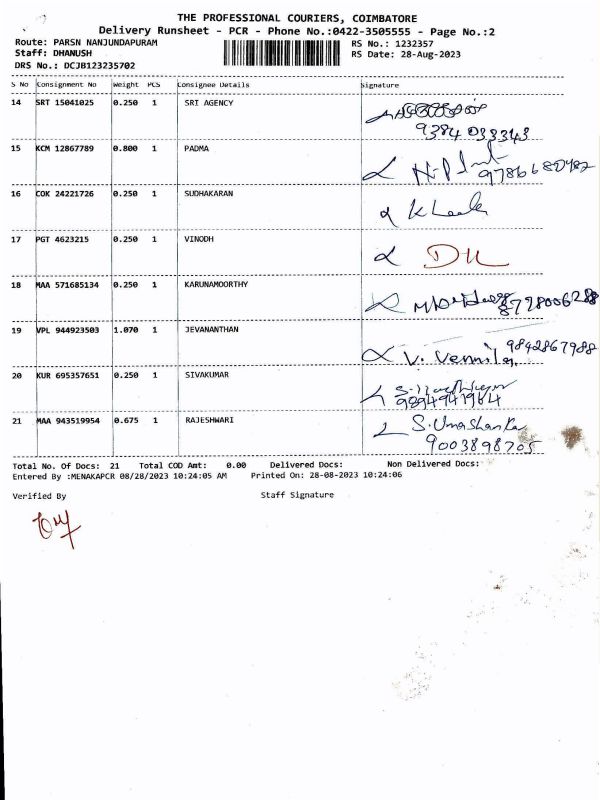 THE PROFESSIONAL COURIERS, COIMBATORE
Delivery Runsheet - PCR - Phone No.:0422-3505555 - Page No.:2
Route: PARSN NANJUNDAPURAM RS No.: 1232357
Staff: DHANUSH RS Date: 28-Aug-2023
DRS No.: DCJB123235702
S No Consignment No Weight PCS Consignee Details Signature
14 SRT 15041025 0.250 1 SRI AGENCY
9384 033343
15 KCM 12867789 0.800 1 PADMA
16 COK 24221726 0.250 1 SUDHAKARAN
17 PGT 4623215 0.250 1 VINODH
18 MAA 571685134 0.250 1 KARUNAMOORTHY
8778006288
19 VPL 944923503 1.070 1 JEVANANTHAN
9842867988
V. Vennila
20 KUR 695357651 0.250 1 SIVAKUMAR
9894941964
21 MAA 943519954 0.675 1 RAJESHWARI
S.Umashankar
9003898705
Total No. Of Docs: 21 Total COD Amt: 0.00 Delivered Docs: Non Delivered Docs:
Entered By :MENAKAPCR 08/28/2023 10:24:05 AM Printed On: 28-08-2023 10:24:06
Verified By Staff Signature